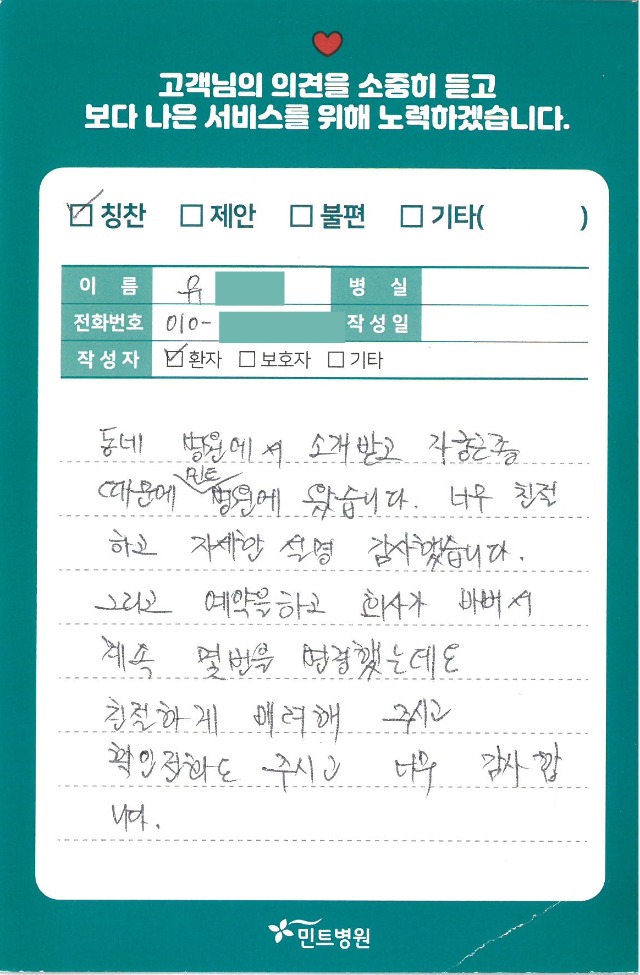 고객님의 의견을 소중히 듣고
보다 나은 서비스를 위해 노력하겠습니다.
칭찬 제안 불편 기타( )
이 름 유 병 실
전화번호 010- 작성일
작성자 환자 보호자 기타
동네 병원에서 소개받고 자궁근종
때문에 민트 병원에 왔습니다. 너무 친절
하고 자세한 설명 감사했습니다.
그리고 예약을하고 회사가 바뻐서
계속 몇번을 변경했는데도
친절하게 배려해 주시고
확인전화도 주시고 너무 감사합
니다.
민트병원